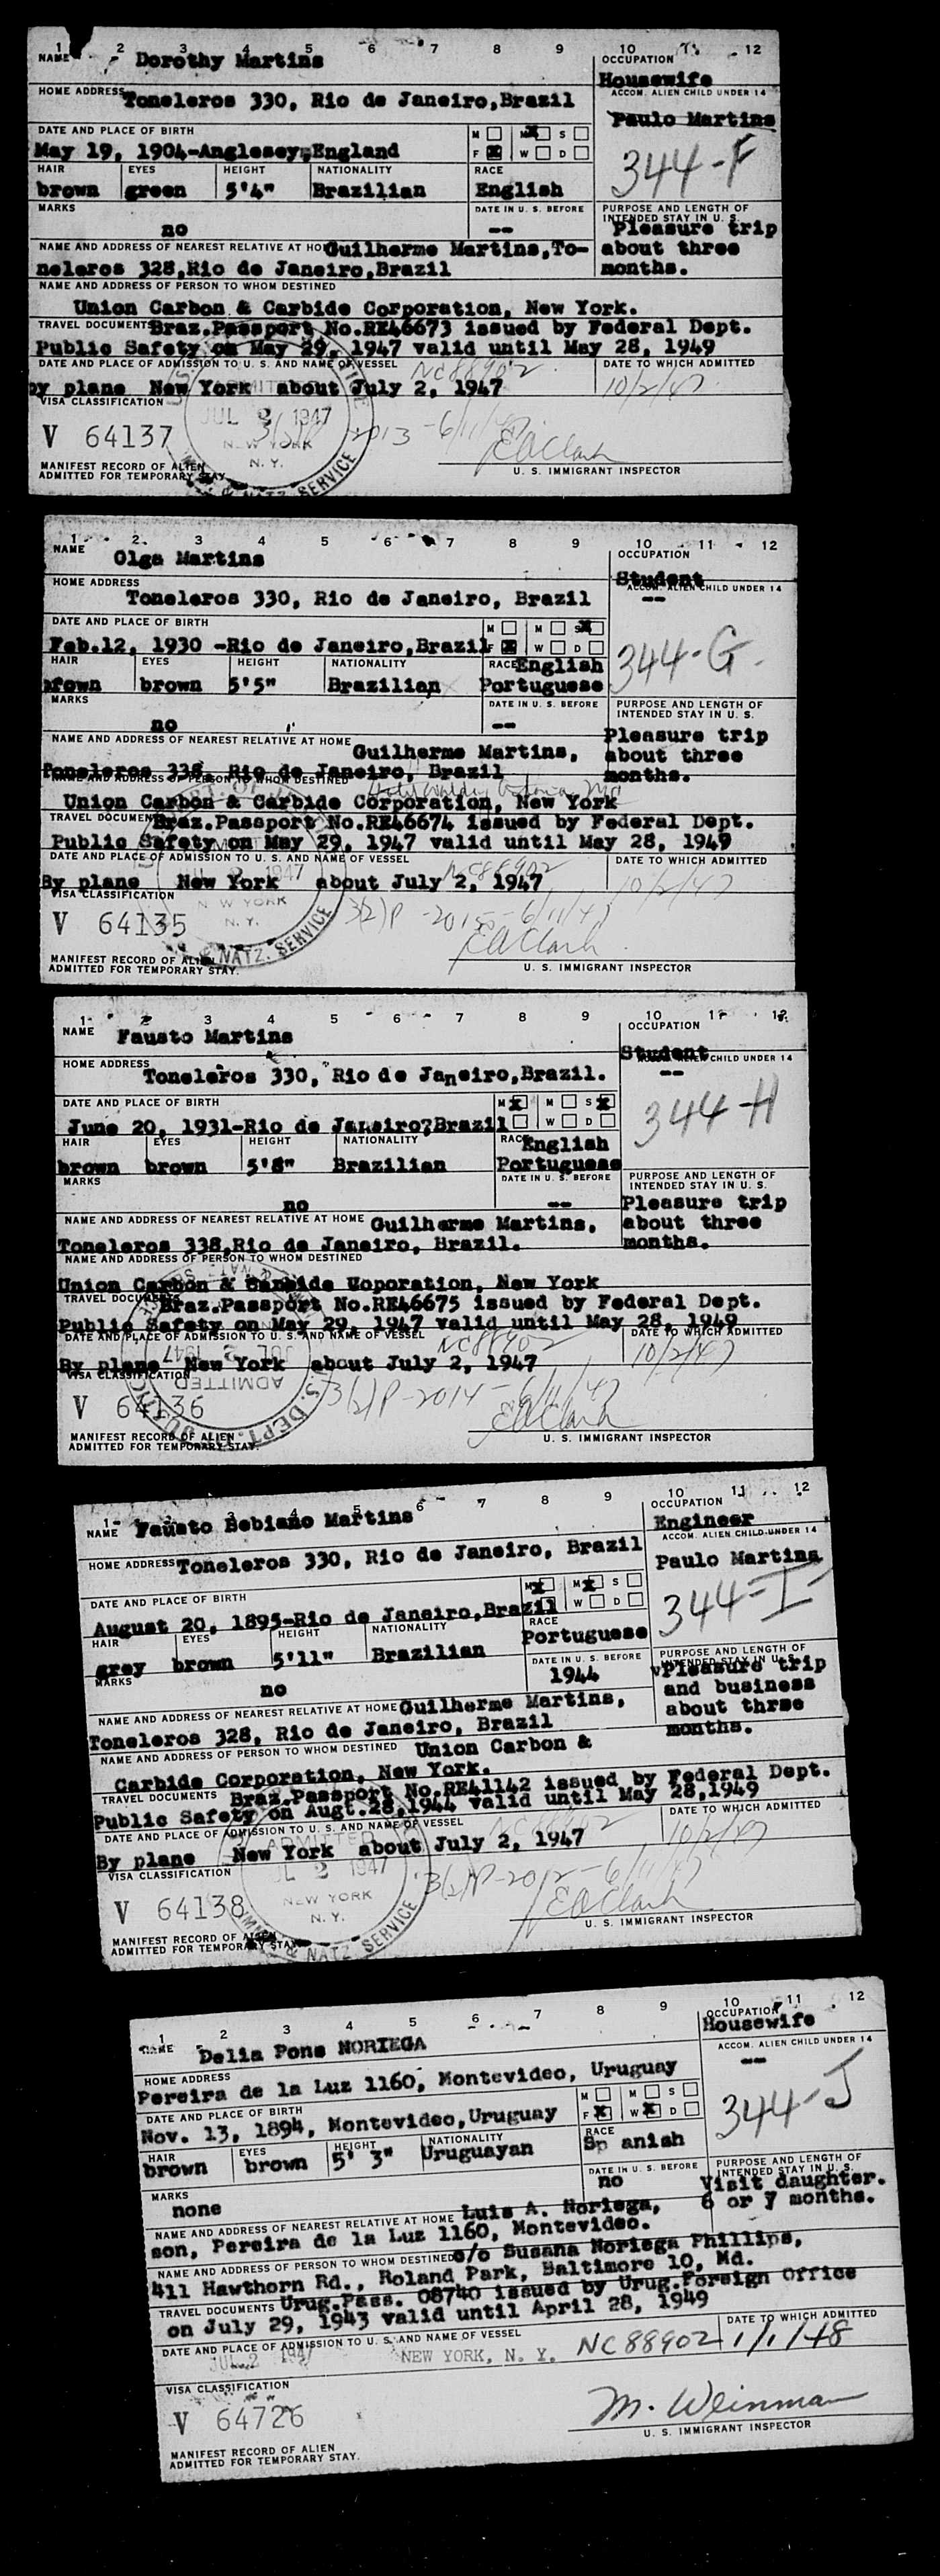 1 2 3 4 5 6 7 8 9 10 11 12
NAME Dorothy Martins
OCCUPATION
Housewife
HOME ADDRESS Toneleros 330, Rio de Janeiro,Brazil
ACCOM. ALIEN CHILD UNDER 14
Paulo Martins
DATE AND PLACE OF BIRTH M M S
May 19, 1904-Anglesey,England F W D
344-F
HAIR EYES HEIGHT NATIONALITY RACE
brown green 5'4" Brazilian English
MARKS DATE IN U. S. BEFORE PURPOSE AND LENGTH OF
INTENDED STAY IN U. S.
no -- Pleasure trip
NAME AND ADDRESS OF NEAREST RELATIVE AT HO Guilherme Martins,To- about three
neleros 328,Rio de Janeiro,Brazil months.
NAME AND ADDRESS OF PERSON TO WHOM DESTINED
Union Carbon & Carbide Corporation, New York.
TRAVEL DOCUMENTS Braz.Passport No.RE46673 issued by Federal Dept.
Public Safety on May 29, 1947 valid until May 28, 1949
DATE AND PLACE OF ADMISSION TO U. S. AND NAME OF VESSEL NC88902 DATE TO WHICH ADMITTED
by plane New York about July 2, 1947 10/2/47
VISA CLASSIFICATION
JUL 2 1947
V 64137 NEW YORK 2013 -6/11/47 EAClark
N. Y.
U. S. IMMIGRANT INSPECTOR
MANIFEST RECORD OF ALIEN
ADMITTED FOR TEMPORARY STAY. & NATZ SERVICE
1 2 3 4 5 6 7 8 9 10 11 12
NAME Olga Martins
OCCUPATION
Student
HOME ADDRESS ACCOM. ALIEN CHILD UNDER 14
Toneleros 330, Rio de Janeiro, Brazil --
DATE AND PLACE OF BIRTH M M S
Feb.12, 1930 -Rio de Janeiro,Brazil F W D
344-G-
HAIR EYES HEIGHT NATIONALITY RACE English
brown brown 5'5" Brazilian Portuguese
MARKS DATE IN U. S. BEFORE PURPOSE AND LENGTH OF
INTENDED STAY IN U. S.
no -- Pleasure trip
NAME AND ADDRESS OF NEAREST RELATIVE AT HOME Guilherme Martins, about three
Toneleros 338, Rio de Janeiro, Brazil months.
NAME AND ADDRESS OF PERSON TO WHOM DESTINED
Union Carbon & Carbide Corporation, New York
TRAVEL DOCUMEN Braz.Passport No.RE46674 issued by Federal Dept.
Public Safety on May 29, 1947 valid until May 28, 1949
DATE AND PLACE OF ADMISSION TO U. S. AND NAME OF VESSEL DATE TO WHICH ADMITTED
By plane New York about July 2, 1947 NC88902 10/2/47
VISA CLASSIFICATION
NEW YORK
V 64135 N. Y. 3(2)P -2015-6/11/47
EAClark
NATZ. SERVICE
MANIFEST RECORD OF ALIEN
ADMITTED FOR TEMPORARY STAY.
U. S. IMMIGRANT INSPECTOR
1 2 3 4 5 6 7 8 9 10 11 12
NAME Fausto Martins
OCCUPATION
Student
HOME ADDRESS CHILD UNDER 14
Toneleros 330, Rio de Janeiro,Brazil. --
DATE AND PLACE OF BIRTH M M S
June 20, 1931-Rio de Janeiro?Brazil W D
344-H
HAIR EYES HEIGHT NATIONALITY RACE English
brown brown 5'8" Brazilian Portuguese
MARKS DATE IN U. S. BEFORE PURPOSE AND LENGTH OF
INTENDED STAY IN U. S.
no -- Pleasure trip
NAME AND ADDRESS OF NEAREST RELATIVE AT HOME Guilherme Martins, about three
Toneleros 338,Rio de Janeiro, Brazil. months.
NAME AND ADDRESS OF PERSON TO WHOM DESTINED
Union Carbon & Carbide Uoporation, New York
TRAVEL DOCUMENTS Braz.Passport No.RE46675 issued by Federal Dept.
Public Safety on May 29, 1947 valid until May 28, 1949
DATE AND PLACE OF ADMISSION TO U. S. AND NAME OF VESSEL NC88902 DATE TO WHICH ADMITTED
By plane New York about July 2, 1947 10/2/47
VISA CLASSIFICATION
JUL 2 1947
ADMITTED
V 64136 3(2)P-2014-6/11/47
EAClark
MANIFEST RECORD OF ALIEN
ADMITTED FOR TEMPORARY STAY.
U. S. IMMIGRANT INSPECTOR
1 2 3 4 5 6 7 8 9 10 11 12
NAME Fausto Bebiano Martins
OCCUPATION
Engineer
HOME ADDRESS Toneleros 330, Rio de Janeiro, Brazil
ACCOM. ALIEN CHILD UNDER 14
Paulo Martins
DATE AND PLACE OF BIRTH M M S
August 20, 1895-Rio de Janeiro,Brazil W D
344-I
HAIR EYES HEIGHT NATIONALITY RACE
grey brown 5'11" Brazilian Portuguese
MARKS DATE IN U. S. BEFORE PURPOSE AND LENGTH OF
INTENDED STAY IN U. S.
no 1944 Pleasure trip
and business
NAME AND ADDRESS OF NEAREST RELATIVE AT HOME Guilherme Martins, about three
Toneleros 328, Rio de Janeiro, Brazil months.
NAME AND ADDRESS OF PERSON TO WHOM DESTINED Union Carbon &
Carbide Corporation, New York.
TRAVEL DOCUMENTS Braz.Passport No.RE41142 issued by Federal Dept.
Public Safety on Augt.28,1944 valid until May 28,1949
DATE AND PLACE OF ADMISSION TO U. S. AND NAME OF VESSEL NC88902 DATE TO WHICH ADMITTED
By plane New York about July 2, 1947 10/2/47
VISA CLASSIFICATION
ADMITTED
JUL 2 1947
NEW YORK
N. Y.
V 64138 3(2)P-2012-6/11/47
EAClark
NATZ SERVICE
MANIFEST RECORD OF ALIEN
ADMITTED FOR TEMPORARY STAY
U. S. IMMIGRANT INSPECTOR
1 2 3 4 5 6 7 8 9 10 11 12
NAME Delia Pons NORIEGA
OCCUPATION
Housewife
HOME ADDRESS ACCOM. ALIEN CHILD UNDER 14
Pereira de la Luz 1160, Montevideo, Uruguay --
DATE AND PLACE OF BIRTH M M S
Nov. 13, 1894, Montevideo,Uruguay F W D
344-J
HAIR EYES HEIGHT NATIONALITY RACE
brown brown 5' 3" Uruguayan Sp anish
MARKS DATE IN U. S. BEFORE PURPOSE AND LENGTH OF
INTENDED STAY IN U. S.
none no Visit daughter.
NAME AND ADDRESS OF NEAREST RELATIVE AT HOME Luis A. Noriega, 6 or 7 months.
son, Pereira de la Luz 1160, Montevideo.
NAME AND ADDRESS OF PERSON TO WHOM DESTINED c/o Susana Noriega Phillips,
411 Hawthorn Rd., Roland Park, Baltimore 10, Md.
TRAVEL DOCUMENTS Urug.Pass. 08740 issued by Urug.Foreign Office
on July 29, 1943 valid until April 28, 1949
DATE AND PLACE OF ADMISSION TO U. S. AND NAME OF VESSEL DATE TO WHICH ADMITTED
JUL 2 1947 NEW YORK, N. Y. NC88902 1/1/48
VISA CLASSIFICATION
V 64726 M. Weinman
U. S. IMMIGRANT INSPECTOR
MANIFEST RECORD OF ALIEN
ADMITTED FOR TEMPORARY STAY.